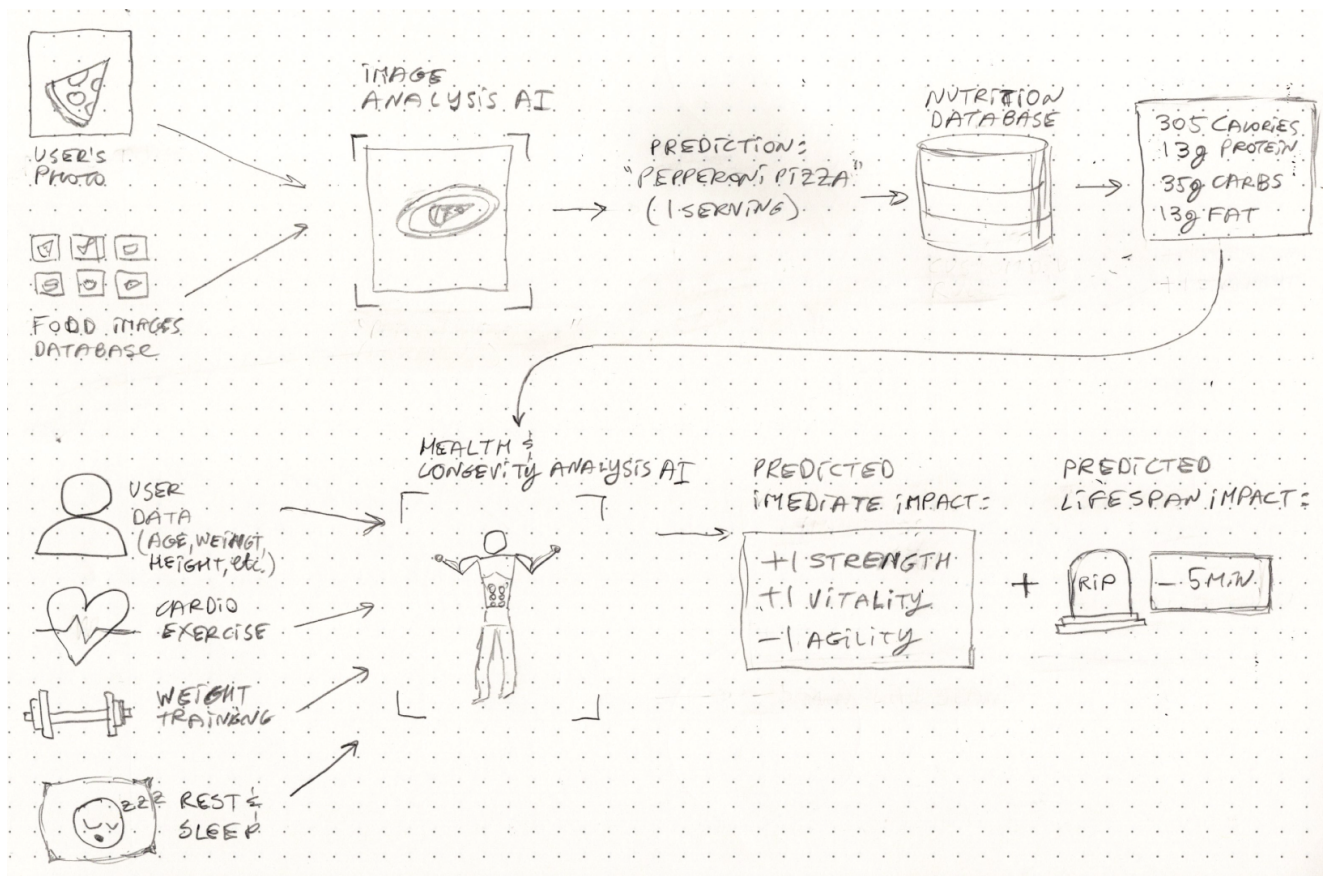 USER'S
PHOTO
FOOD IMAGES
DATABASE
IMAGE
ANALYSIS AI
PREDICTION:
"PEPPERONI PIZZA"
(1 SERVING)
NUTRITION
DATABASE
305 CALORIES
13g PROTEIN
35g CARBS
13g FAT
USER
DATA
(AGE, WEIGHT,
HEIGHT, etc.)
CARDIO
EXERCISE
WEIGHT
TRAINING
zzz
REST &
SLEEP
HEALTH &
LONGEVITY ANALYSIS AI
PREDICTED
IMEDIATE IMPACT:
+1 STRENGTH
+1 VITALITY
-1 AGILITY
+
PREDICTED
LIFESPAN IMPACT:
RIP
- 5 MIN.